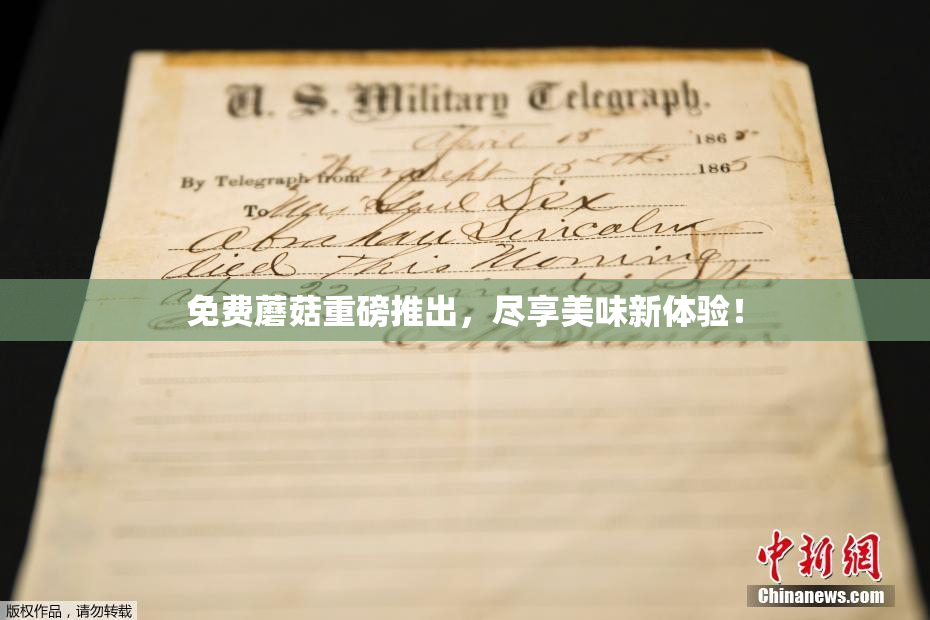 U. S. Military Telegraph.
April 15 1865
By Telegraph from War Dept 15th 1865
To Maj Genl Dix
Abraham Lincoln
died This Morning
after 22 minutes after
免费蘑菇重磅推出，尽享美味新体验！
E. M. Stanton
中新網
Chinanews.com
版权作品，请勿转载